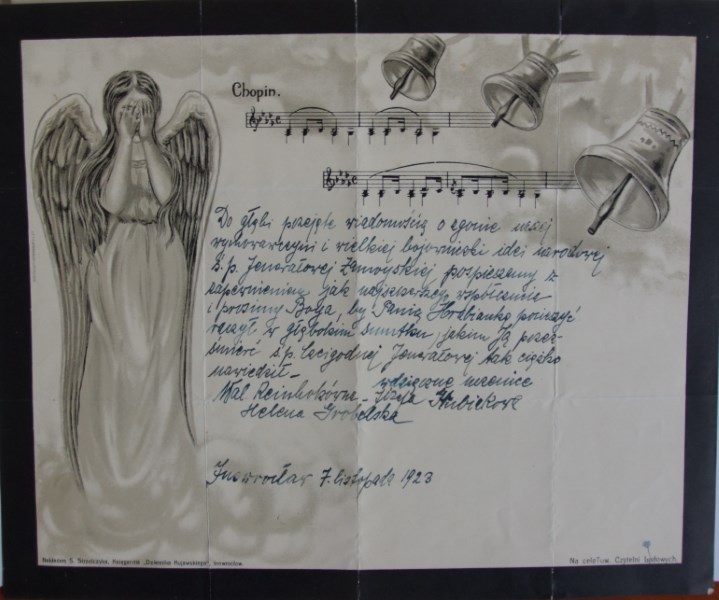 Chopin.
Do głębi przejęte wiadomością o zgonie naszej
wychowawczyni i wielkiej bojowniczki idei narodowej
ś. p. Jenerałowej Zamoyskiej pospieszamy z
zapewnieniem jak najszczerszego współczucia
i prosimy Boga, by Panią Hrabiankę pocieszyć
raczył w głębokim smutku, jakim Ją przez
śmierć ś.p. Czcigodnej Jenerałowej tak ciężko
nawiedził —
wdzięczne uczenice
Wal - Józefa Kubickova
Helena Grobelska
Inowrocław 7. listopada 1923
Nakładem S. Księgarnia „Dziennika Kujawskiego", Inowrocław.
Na cele Tow. Czytelni ludowych.